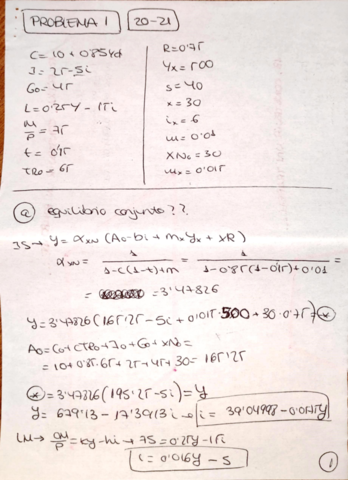 PROBLEMA 1 20-21
C = 10 + 0'85Yd
I = 25 - 5i
G0 = 45
L = 0'25Y - 15i
M/P = 75
t = 0'15
TR0 = 65
R = 0'75
Yx = 500
s = 40
x = 30
ix = 6
m = 0'01
XN0 = 30
mx = 0'015
a equilibrio conjunto??
IS → Y = αXN (A0 - bi + mxYx + xR)
αXN = 1 / 1-c(1-t)+m = 1 / 1-0'85(1-0'15)+0'01 =
= 3'47826
Y = 3'47826 (165'25 - 5i + 0'015·500 + 30·0'75) = *
A0 = C0 + cTR0 + I0 + G0 + XN0 =
= 10 + 0'85·65 + 25 + 45 + 30 = 165'25
* = 3'47826 (195'25 - 5i) = Y
Y = 679'13 - 17'3913i → i = 39'04998 - 0'0575Y
LM → M/P = kY - hi → 75 = 0'25Y - 15i
i = 0'016Y - 5
1